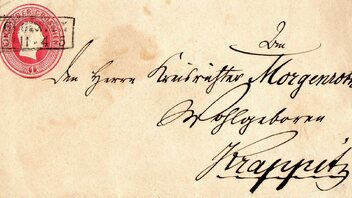 An
den Herrn Kreisrichter Morgenroth
Wohlgeboren
Krappitz